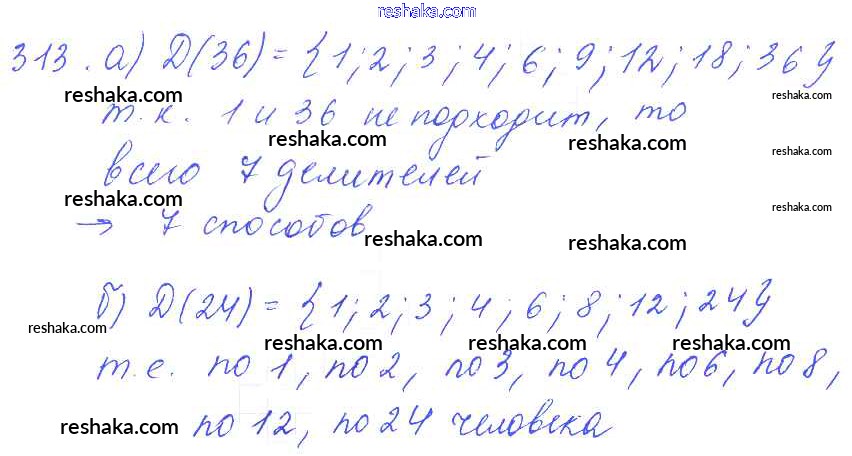 reshaka.com
313. а) D(36) = {1; 2; 3; 4; 6; 9; 12; 18; 36}
reshaka.com reshaka.com reshaka.com
т.к. 1 и 36 не подходит, то
reshaka.com reshaka.com reshaka.com
всего 7 делителей
reshaka.com reshaka.com
→ 7 способов
reshaka.com reshaka.com
б) D(24) = {1; 2; 3; 4; 6; 8; 12; 24}
reshaka.com reshaka.com reshaka.com reshaka.com
т.е. по 1, по 2, по 3, по 4, по 6, по 8,
reshaka.com по 12, по 24 человека